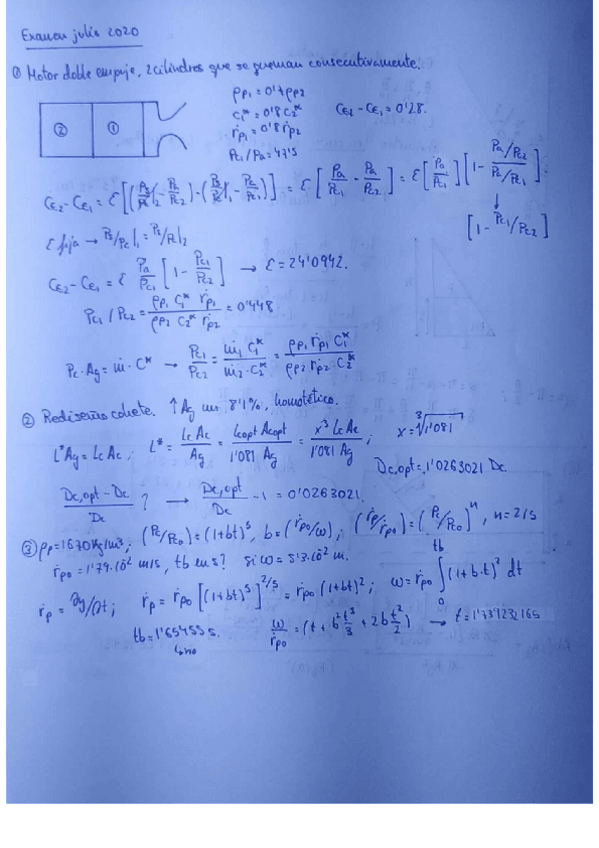 Examen julio 2020
① Motor doble empuje, 2 cilindros que se queman consecutivamente.
② ①
ρp1 = 0'7ρp2
C1* = 0'8 C2*
ṙp1 = 0'8 ṙp2
Pc1/Pa = 47'5
CE2 - CE1 = 0'28.
CE2 - CE1 = ε[(Ps/Pc|2 - Pa/Pc2) - (Ps/Pc|1 - Pa/Pc1)] = ε[Pa/Pc1 - Pa/Pc2] = ε[Pa/Pc1][1 - (Pa/Pc2)/(Pa/Pc1)]
↓
[1 - Pc1/Pc2]
ε fija → Ps/Pc|1 = Ps/Pc|2
CE2 - CE1 = ε Pa/Pc1 [1 - Pc1/Pc2] → ε = 24'0942.
Pc1/Pc2 = (ρp1 C1* ṙp1)/(ρp2 C2* ṙp2) = 0'448
Pc·Ag = ṁ·C* → Pc1/Pc2 = (ṁ1 C1*)/(ṁ2·C2*) = (ρp1 ṙp1 C1*)/(ρp2 ṙp2 C2*)
② Rediseño cohete. ↑Ag un 8'1%, homotético.
L*Ag = Lc Ac; L* = (Lc Ac)/Ag = (Lcopt Acopt)/(1'081 Ag) = (x³ Lc Ac)/(1'081 Ag); x = ∛1'081
Dc,opt = 1'0263021 Dc
(Dc,opt - Dc)/Dc ? → Dc,opt/Dc - 1 = 0'0263021.
③ ρp = 1670 kg/m³; (Pc/Pc0) = (1+bt)⁵, b = (ṙp0/ω); (ṙp/ṙp0) = (Pc/Pc0)ⁿ, n = 2/5
ṙp0 = 1'79·10⁻² m/s, tb en s? si ω = 5'3·10⁻² m.
ṙp = ∂y/∂t; ṙp = ṙp0 [(1+bt)⁵]^2/5 = ṙp0 (1+bt)²; ω = ṙp0 ∫₀^tb (1+b·t)² dt
tb = 1'65455 s.
↳ no
ω/ṙp0 = (t + b² t³/3 + 2b t²/2) → t = 1'737232165